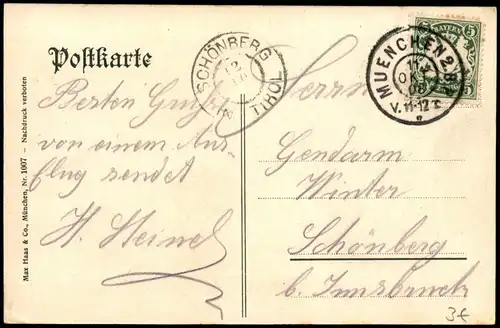 Postkarte
SCHÖNBERG
TIROL
12
MUENCHEN 2.B.
OKT
V. 11-12
BAYERN
5 5
Herrn
Besten Gruß
von einem Aus-
flug sendet
H. Steinel
Gendarm
Winter
Schönberg
b. Innsbruck
Max Haas & Co., München, Nr. 1007 – Nachdruck verboten
3€